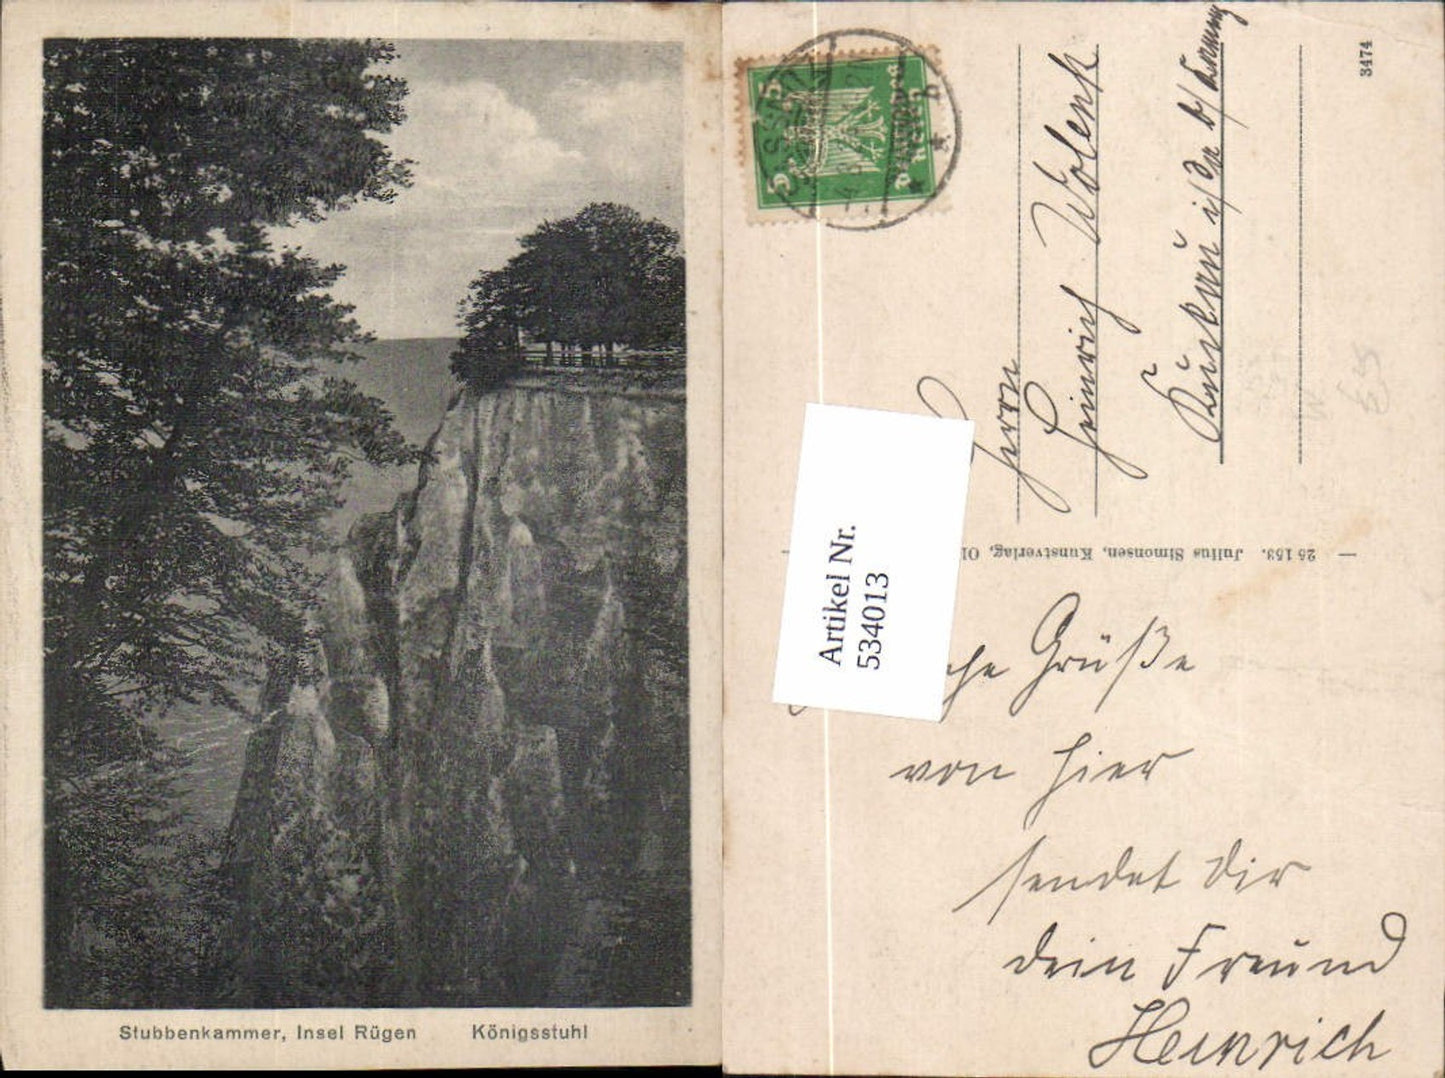 Stubbenkammer, Insel Rügen Königsstuhl
3474
Herrn
Heinrich
i/
b/
Artikel Nr.
534013
25153. Julius Simonsen, Kunstverlag, Ol
Grüße
von hier
sendet Dir
dein Freund
Heinrich